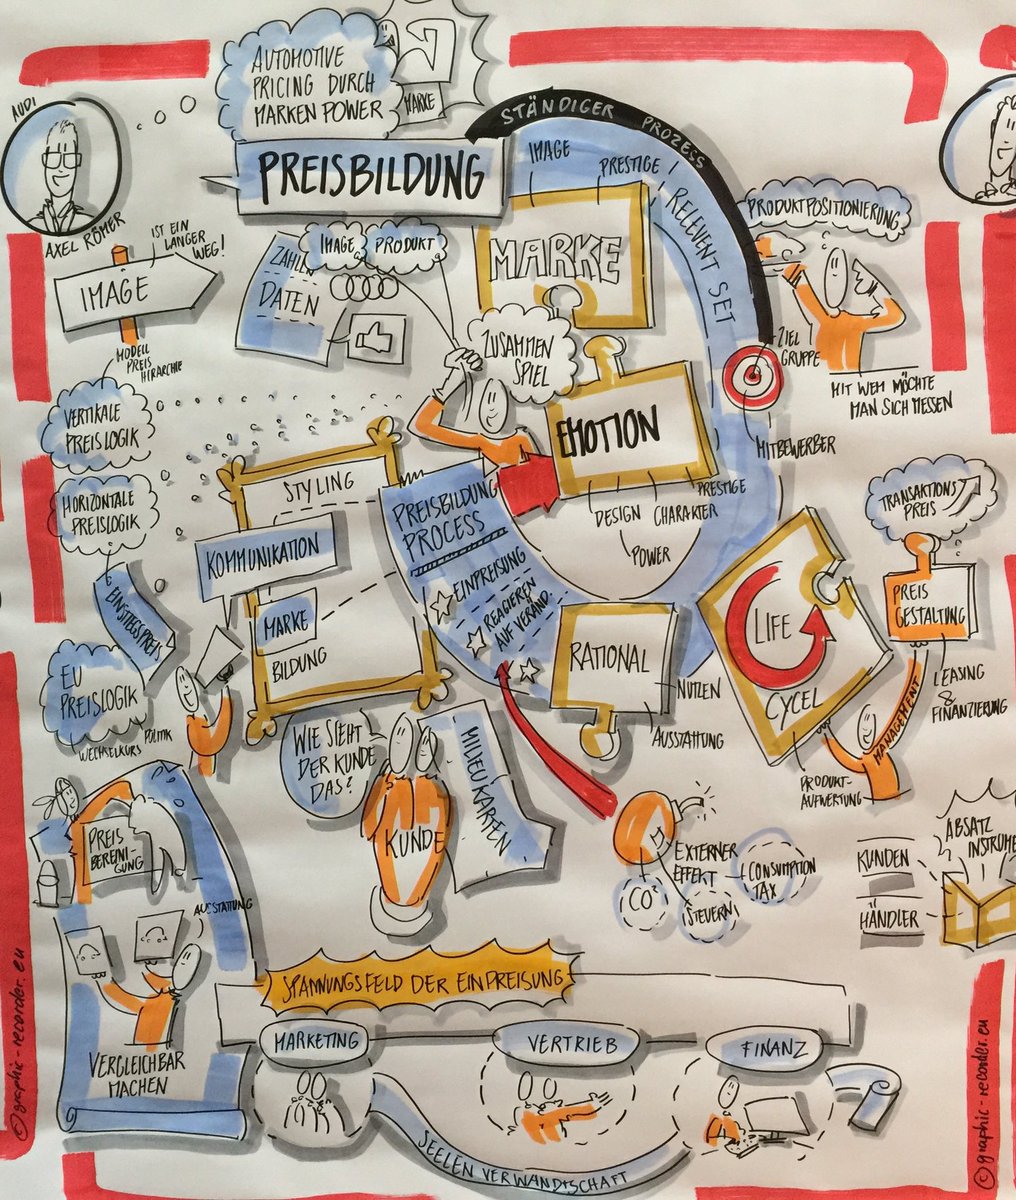 AUTOMOTIVE
PRICING DURCH
MARKEN POWER
MARKE
AUDI
AXEL RÖMER
PREISBILDUNG
STÄNDIGER PROZESS
IMAGE
PRESTIGE
RELEVENT SET
MARKE
PRODUKTPOSITIONIERUNG
ZIEL
GRUPPE
MIT WEM MÖCHTE
MAN SICH MESSEN
MITBEWERBER
IMAGE
IST EIN
LANGER
WEG!
ZAHLEN
DATEN
IMAGE
PRODUKT
ZUSAMMEN
SPIEL
EMOTION
DESIGN
CHARAKTER
PRESTIGE
POWER
MODELL
PREIS
HIRARCHIE
VERTIKALE
PREISLOGIK
HORIZONTALE
PREISLOGIK
EINSTIEGSPREIS
EU
PREISLOGIK
WECHSELKURS
POLITIK
STYLING
KOMMUNIKATION
MARKE
BILDUNG
PREISBILDUNG
PROCESS
EINPREISUNG
REAGIEREN
AUF VERÄND.
RATIONAL
NUTZEN
AUSSTATTUNG
LIFE
CYCEL
PRODUKT-
AUFWERTUNG
TRANSAKTIONS
PREIS
PREIS
GESTALTUNG
LEASING
&
FINANZIERUNG
MANAGEMENT
WIE SIEHT
DER KUNDE
DAS?
KUNDE
MILIEU KARTEN
EXTERNER
EFFEKT
CO²
STEUERN
CONSUMPTION
TAX
KUNDEN
HÄNDLER
ABSATZ
INSTRUME
PREIS
BEREINI-
GUNG
AUSSTATTUNG
VERGLEICHBAR
MACHEN
SPANNUNGSFELD DER EINPREISUNG
MARKETING
VERTRIEB
FINANZ
SEELEN VERWANDTSCHAFT
©graphic-recorder.eu
©graphic-recorder.eu